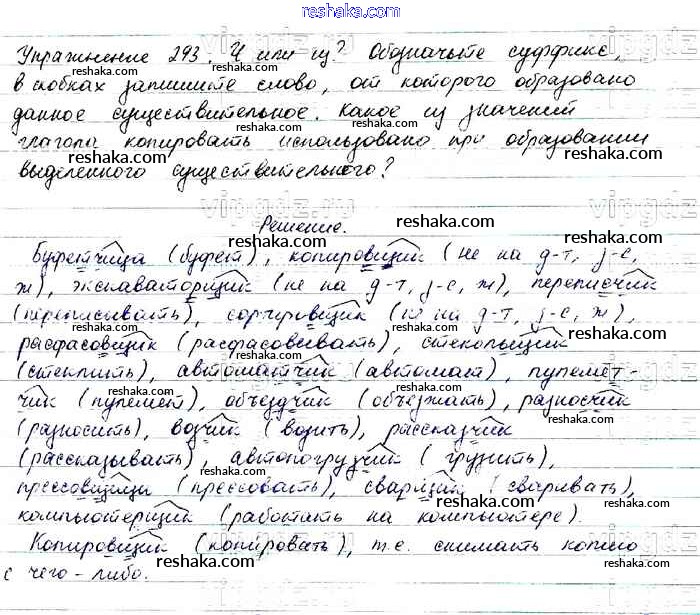 reshaka.com
Упражнение 293. Ч или щ? Обозначьте суффикс,
в скобках запишите слово, от которого образовано
данное существительное. Какое из значений
глагола копировать использовано при образовании
выделенного существительного?
Решение.
Буфетчица (буфет), копировщик (не на д-т, з-с,
ж), экскаваторщик (не на д-т, з-с, ж), переписчик
(переписывать), сортировщик (не на д-т, з-с, ж),
расфасовщик (расфасовывать), стекольщик
(стеклить), автоматчик (автомат), пулемет-
чик (пулемет), объездчик (объезжать), разносчик
(разносить), возчик (возить), рассказчик
(рассказывать), автопогрузчик (грузить),
прессовщицы (прессовать), сварщик (сваривать),
компьютерщик (работать на компьютере).
Копировщик (копировать), т.е. снимать копию
с чего-либо.